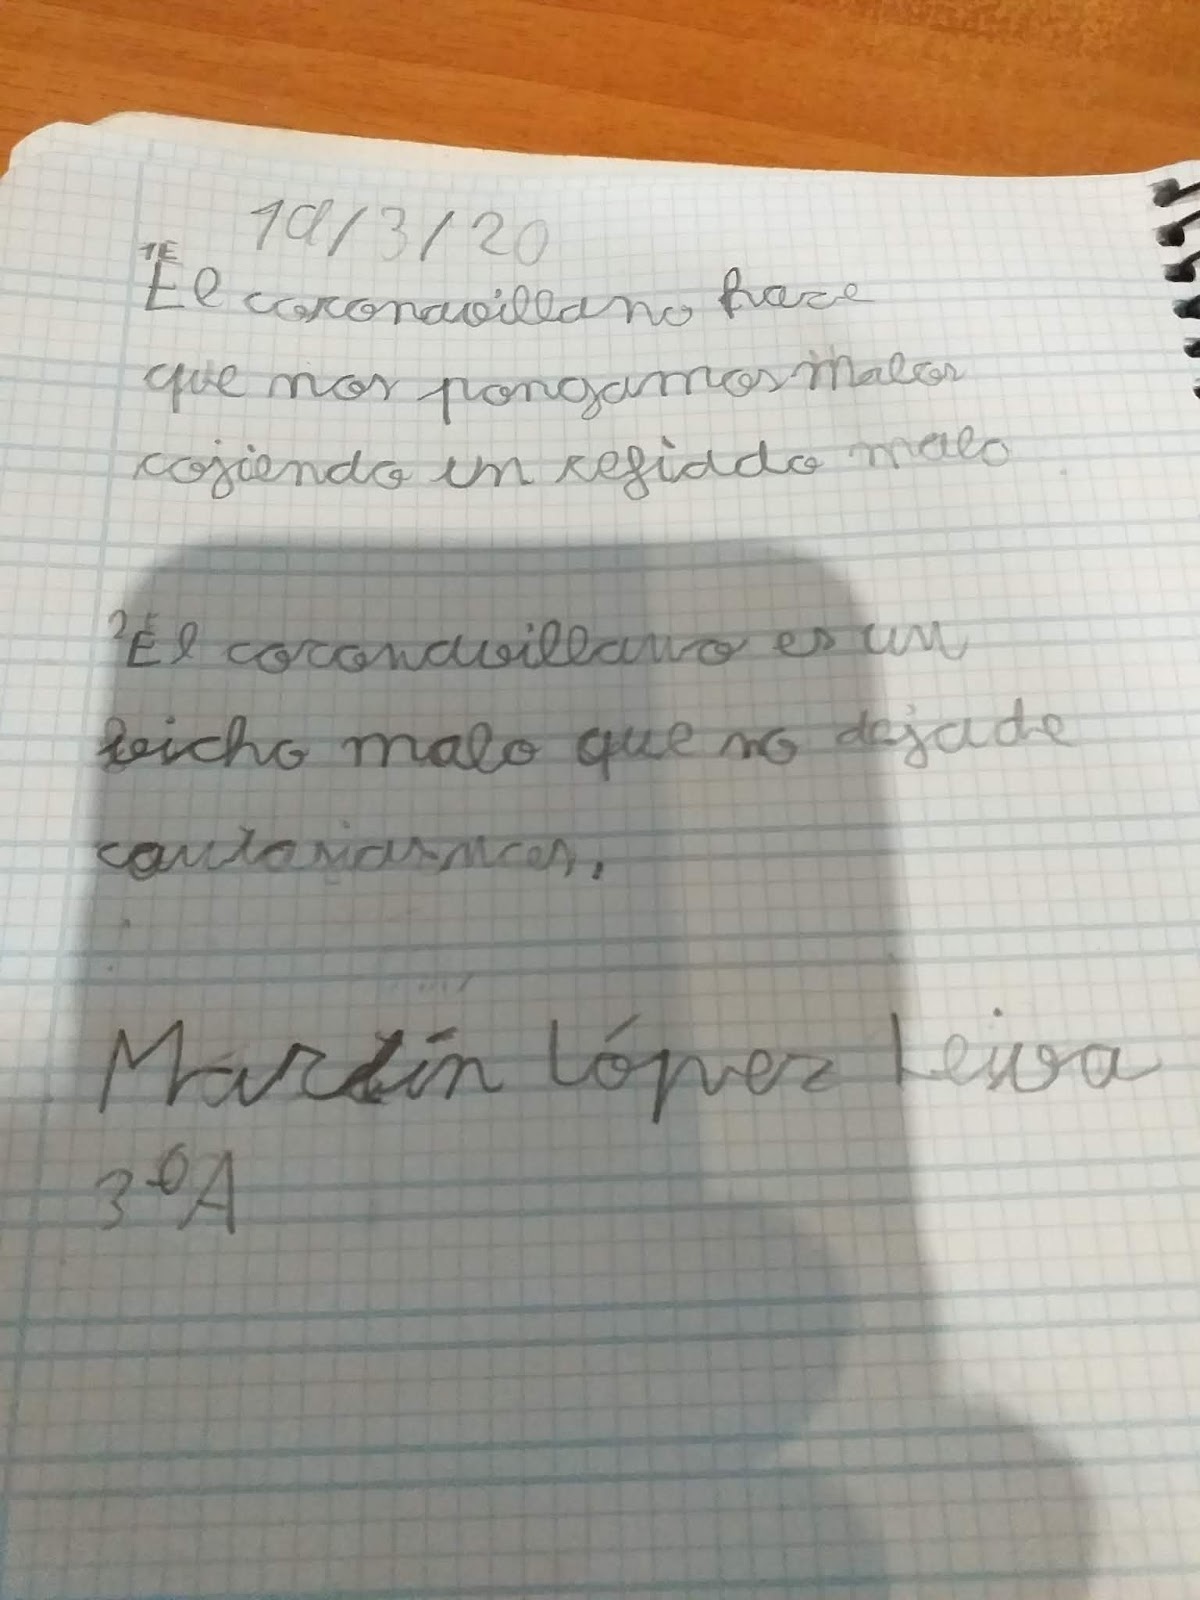 19/3/20
1E
El coronavillano hace
que nos pongamos malos
cojiendo un resfiado malo
2 El coronavillano es un
bicho malo que no deja de
Martín López Leiva
3ºA